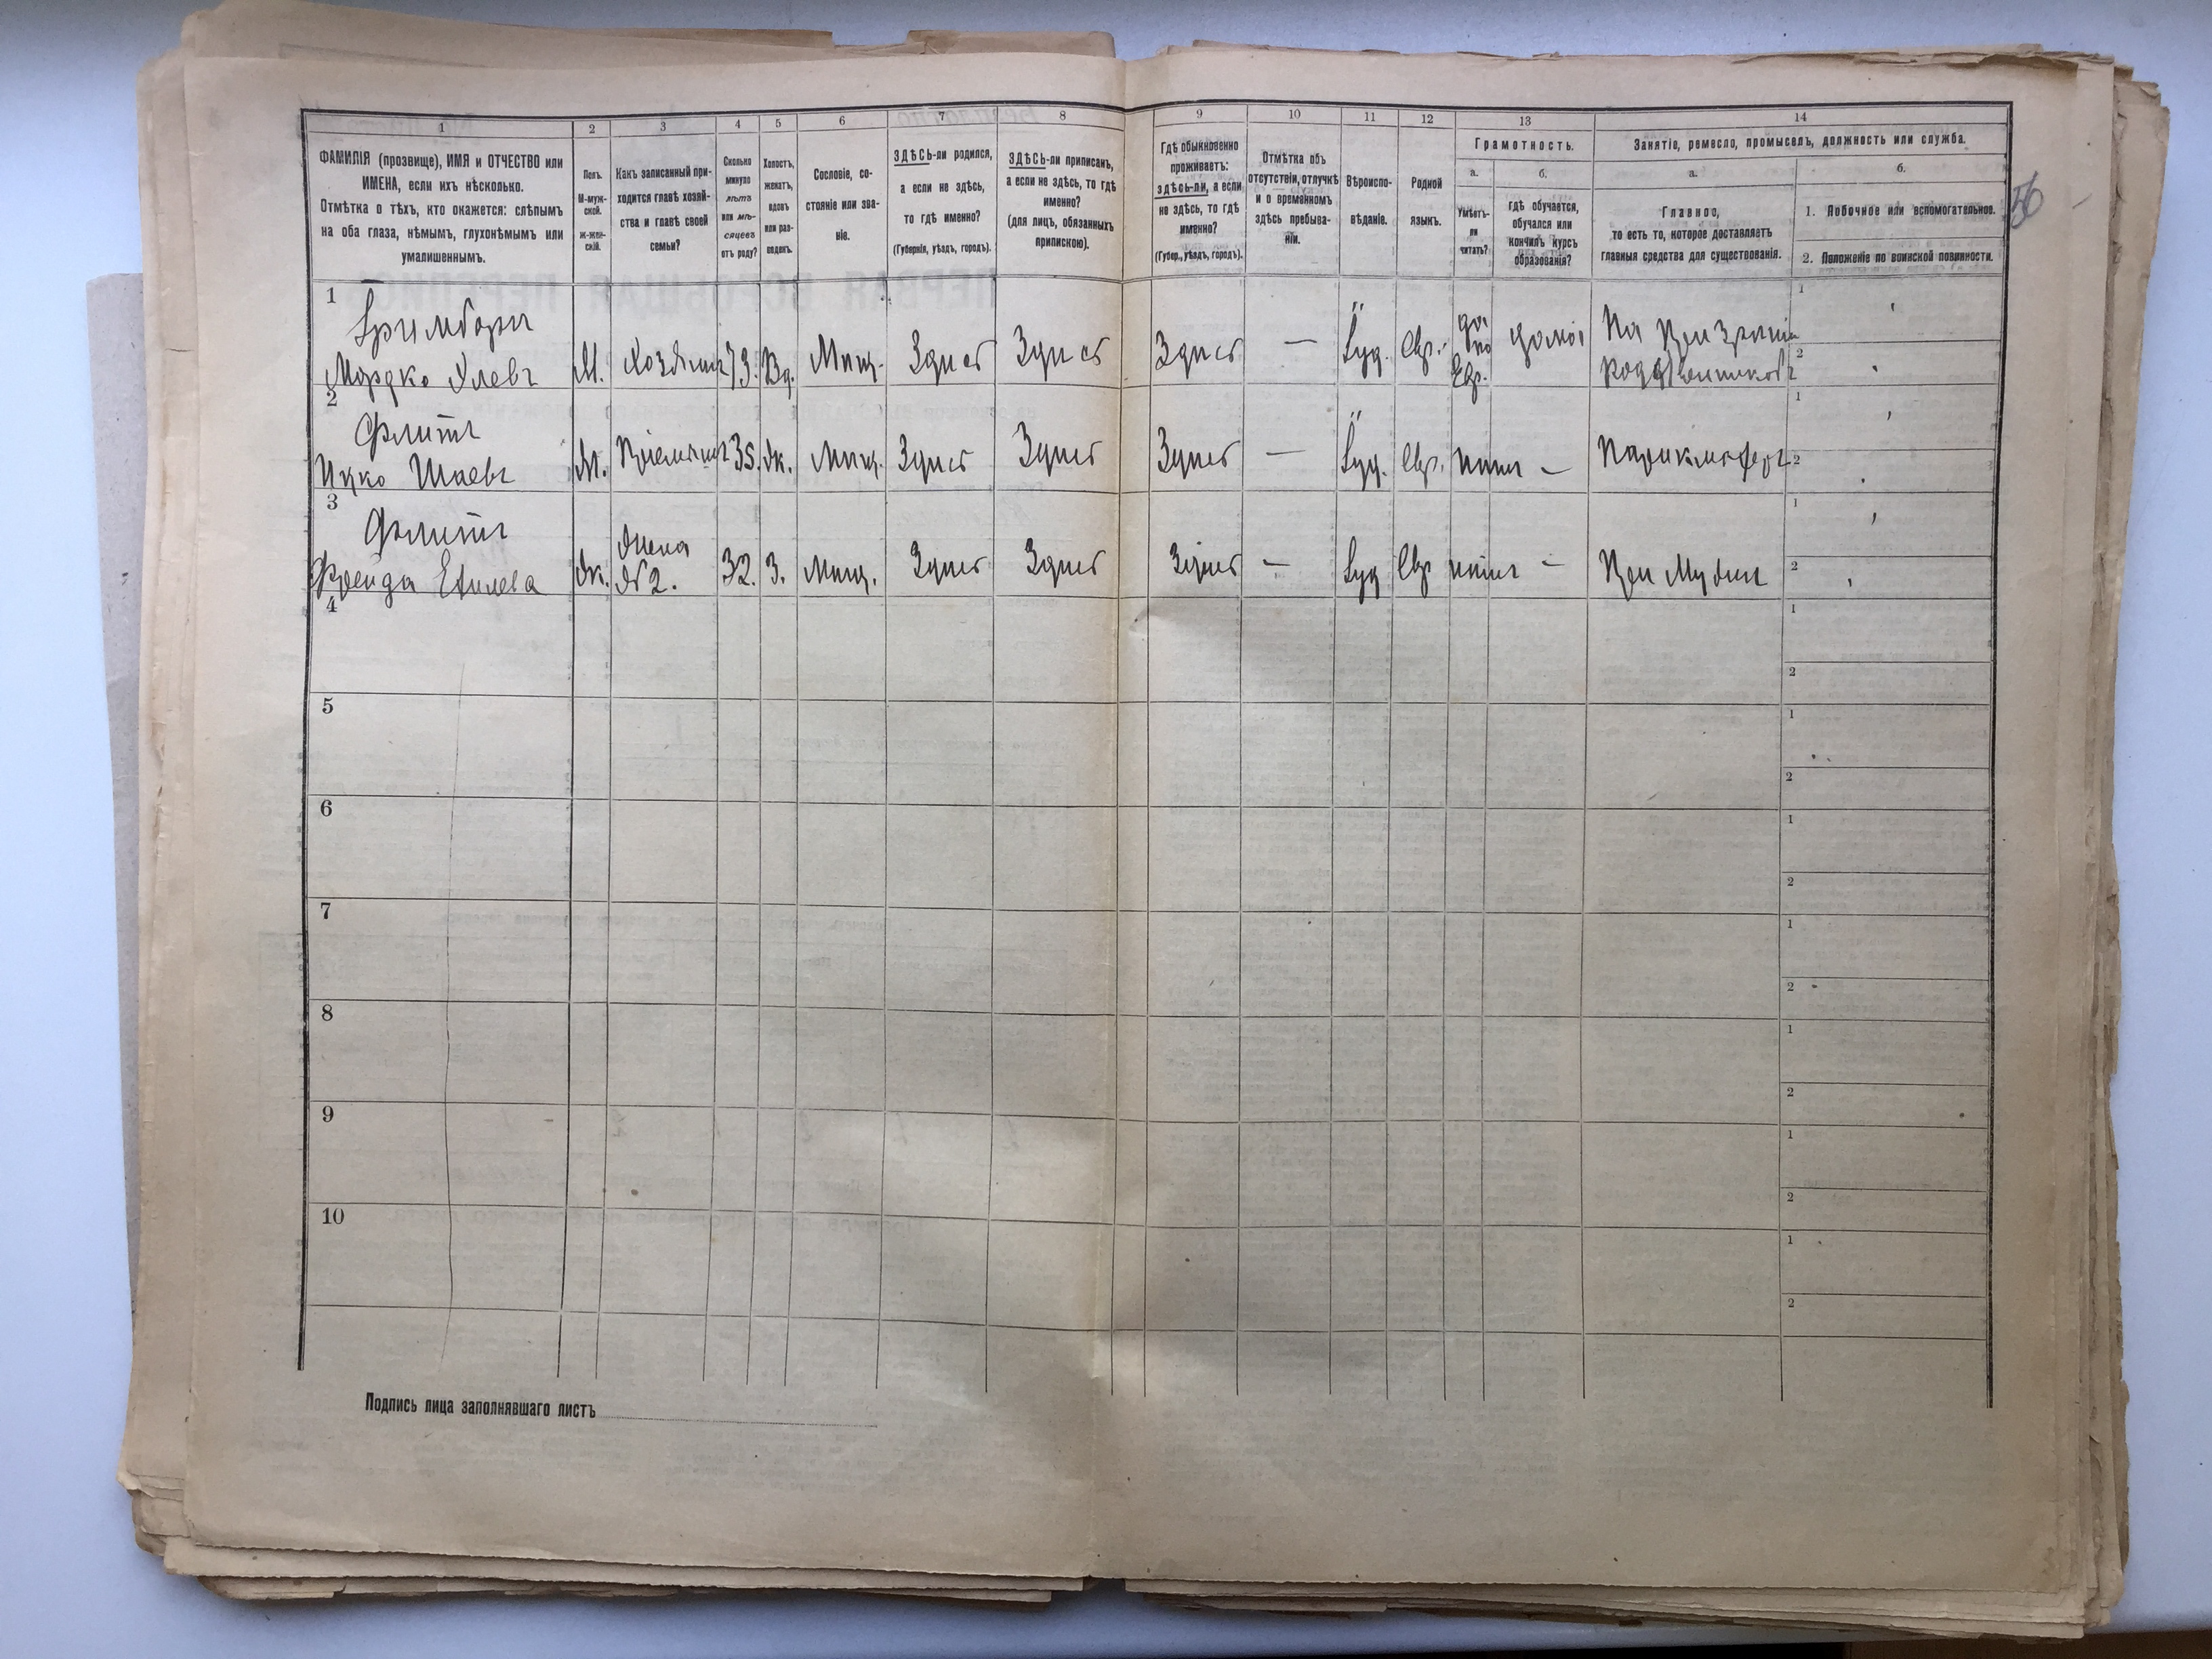 1
2
3
4
5
6
7
8
9
10
11
12
13
14
ФАМИЛІЯ (прозвище), ИМЯ и ОТЧЕСТВО или
ИМЕНА, если ихъ нѣсколько.
Отмѣтка о тѣхъ, кто окажется: слѣпымъ
на оба глаза, нѣмымъ, глухонѣмымъ или
умалишеннымъ.
Полъ.
М-муж-
ской.
Ж-жен-
скій.
Какъ записанный при-
ходится главѣ хозяй-
ства и главѣ своей
семьи?
Сколько
минуло
лѣтъ
или мѣ-
сяцевъ
отъ роду?
Холостъ,
женатъ,
вдовъ
или раз-
веденъ.
Сословіе, со-
стояніе или зва-
ніе.
ЗДѢСЬ-ли родился,
а если не здѣсь,
то гдѣ именно?
(Губернія, уѣздъ, городъ).
ЗДѢСЬ-ли приписанъ,
а если не здѣсь, то гдѣ
именно?
(для лицъ, обязанныхъ
припискою).
Гдѣ обыкновенно
проживаетъ:
здѣсь-ли, а если
не здѣсь, то гдѣ
именно?
(Губер., уѣздъ, городъ).
Отмѣтка объ
отсутствіи, отлучкѣ
и о временномъ
здѣсь пребыва-
ніи.
Вѣроиспо-
вѣданіе.
Родной
языкъ.
Грамотность.
а.
Умѣетъ-
ли
читать?
б.
гдѣ обучается,
обучался или
кончилъ курсъ
образованія?
Занятіе, ремесло, промыселъ, должность или служба.
а.
Главное,
то есть то, которое доставляетъ
главныя средства для существованія.
б.
1. Побочное или вспомогательное.
2. Положеніе по воинской повинности.
1
Мордко
М. Хозяинъ 73. Вд. Мѣщ. Здѣсь Здѣсь Здѣсь — Іуд. Евр. да по Евр. дома
На
1
2
2
Флитъ
Ицко Шаевъ М. 35. Ж. Мѣщ. Здѣсь Здѣсь Здѣсь — Іуд. Евр. нѣтъ — Парикмахеръ
1
2
3
Флитъ
Фрейда Ж. Жена №2. 32. З. Мѣщ. Здѣсь Здѣсь Здѣсь — Іуд Евр нѣтъ — При Мужѣ
1
2
4
1
2
5
1
2
6
1
2
7
1
2
8
1
2
9
1
2
10
1
2
Подпись лица заполнявшаго листъ